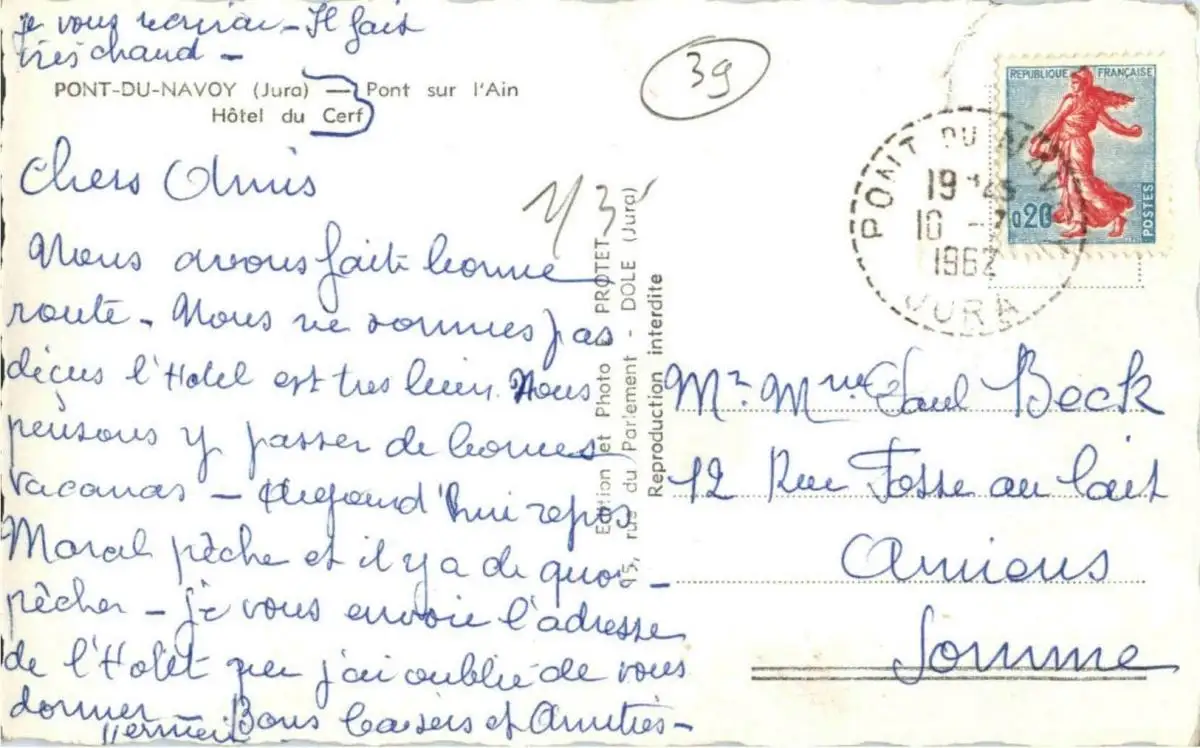 je vous écrirai - Il fait
très chaud -
PONT-DU-NAVOY (Jura) — Pont sur l'Ain
Hôtel du Cerf
Chers Amis
Nous avons fait bonne
route - Nous ne sommes pas
déçus l'Hotel est très bien. Nous
pensons y passer de bonnes
vacances - Aujourd'hui repos
Marcel pêche et il y a de quoi
pêcher - je vous envoie l'adresse
de l'Hotel que j'ai oublié de vous
donner - Bons baisers et Amitiés -
39
Edition et Photo PROTET
15, rue du Parlement - DOLE (Jura)
Reproduction interdite
REPUBLIQUE FRANÇAISE
0,20
POSTES
PONT DU NAVOY
19 45
10 - 7
1962
JURA
Mr. Mme Paul Beck
12 Rue Fosse au lait
Amiens
Somme